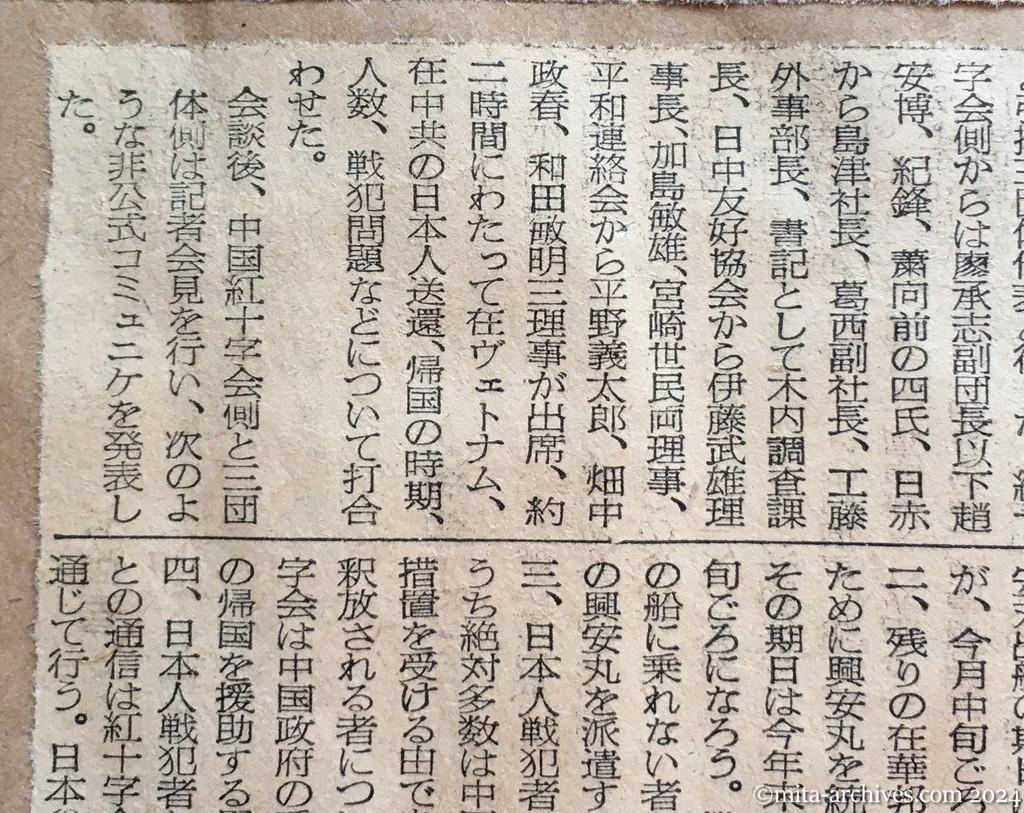 字会側からは廖承志副団長以下趙
安博、紀鋒、蕭向前の四氏、日赤
から島津社長、葛西副社長、工藤
外事部長、書記として木内調査課
長、日中友好協会から伊藤武雄理
事長、加島敏雄、宮崎世民両理事、
平和連絡会から平野義太郎、畑中
政春、和田敏明三理事が出席、約
二時間にわたって在ヴェトナム、
在中共の日本人送還、帰国の時期、
人数、戦犯問題などについて打合
わせた。
会談後、中国紅十字会側と三団
体側は記者会見を行い、次のよ
うな非公式コミュニケを発表し
た。
が、今月中旬ごろ
二、残りの在華邦
ために興安丸を続
その期日は今年末
旬ごろになろう。
の船に乗れない者
の興安丸を派遣す
三、日本人戦犯者
うち絶対多数は中
措置を受ける由で
釈放される者につ
字会は中国政府の
の帰国を援助する
四、日本人戦犯者
との通信は紅十字会
通じて行う。日本
©mita-archives.com 2024